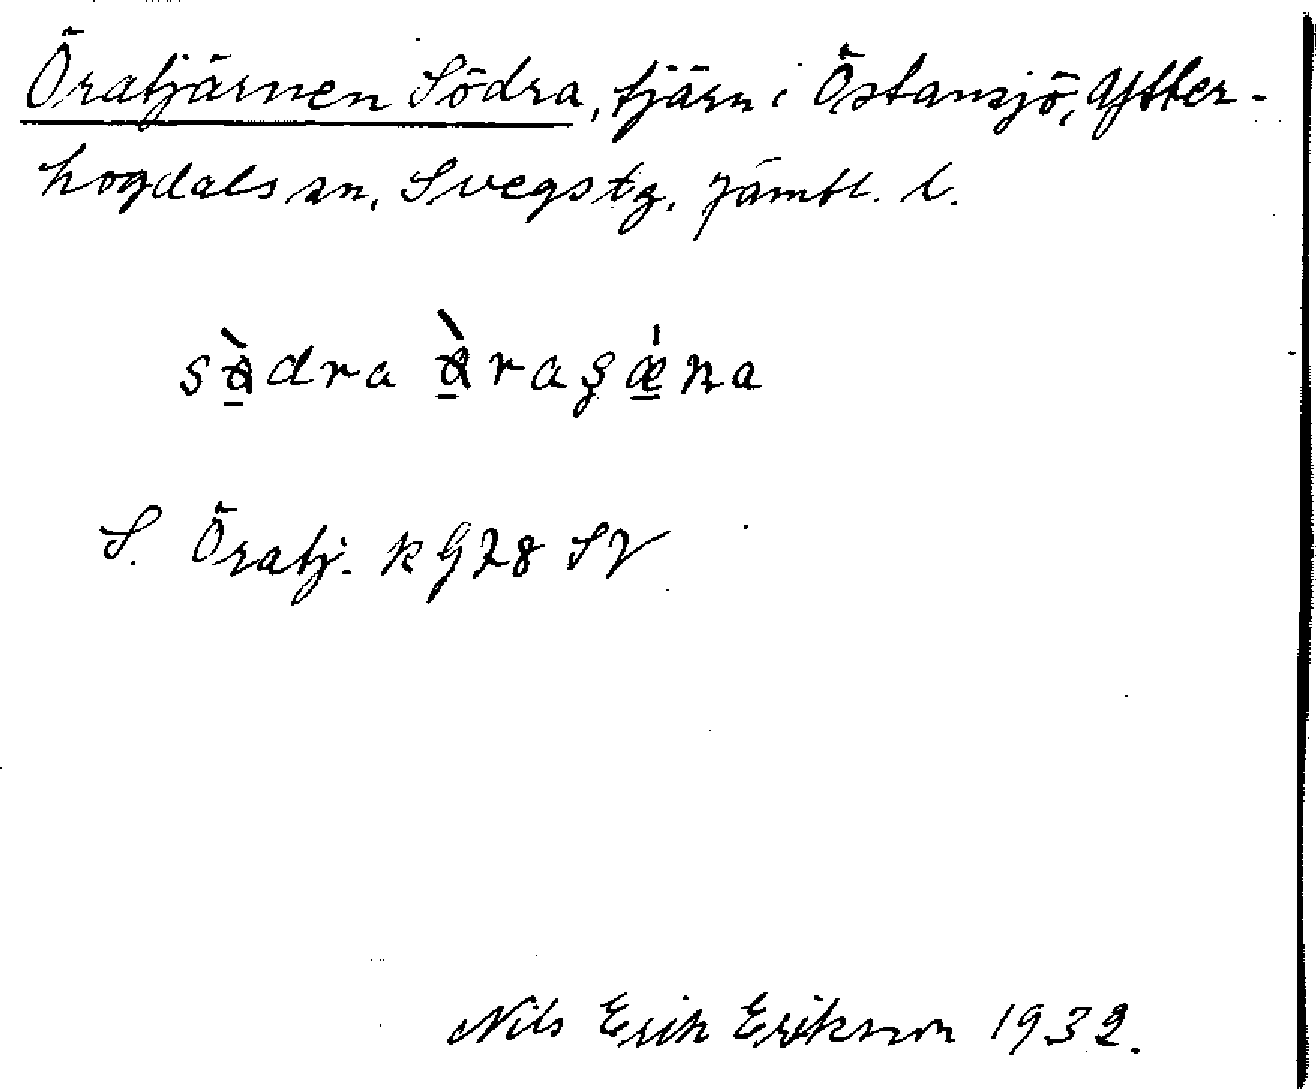 Öratjärnen Södra, tjärn i Östansjö, Ytter-
hogdals sn, Svegs tg, Jämtl. l.
sö̀dra ö̀raʂǽna
S. Öratj. k G78 SV
Nils Erik Erikson 1932.